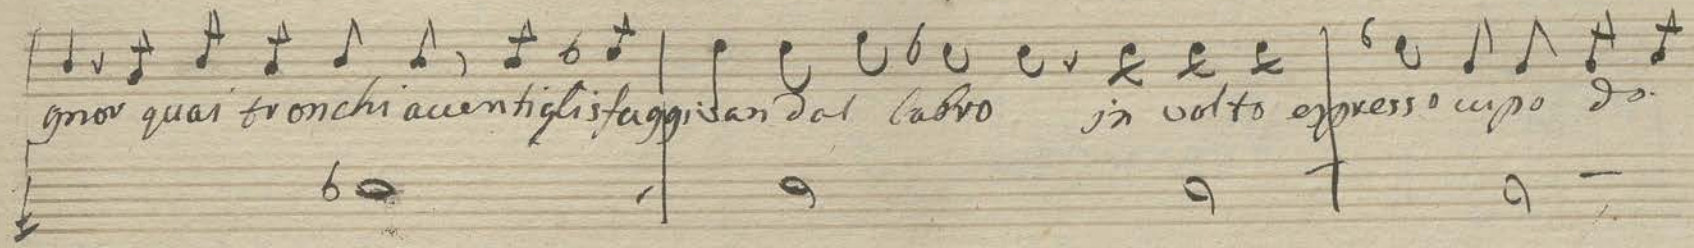 gnor quai tronchi accenti gli sfuggivan dal labro in volto espresso cupo do.